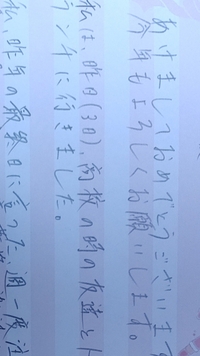 あけましておめでとうございます
今年もよろしくお願いします。
私は、昨日(3日)、高校の時の友達と
ランチに行きました。
私、昨年の最終日に言った通り